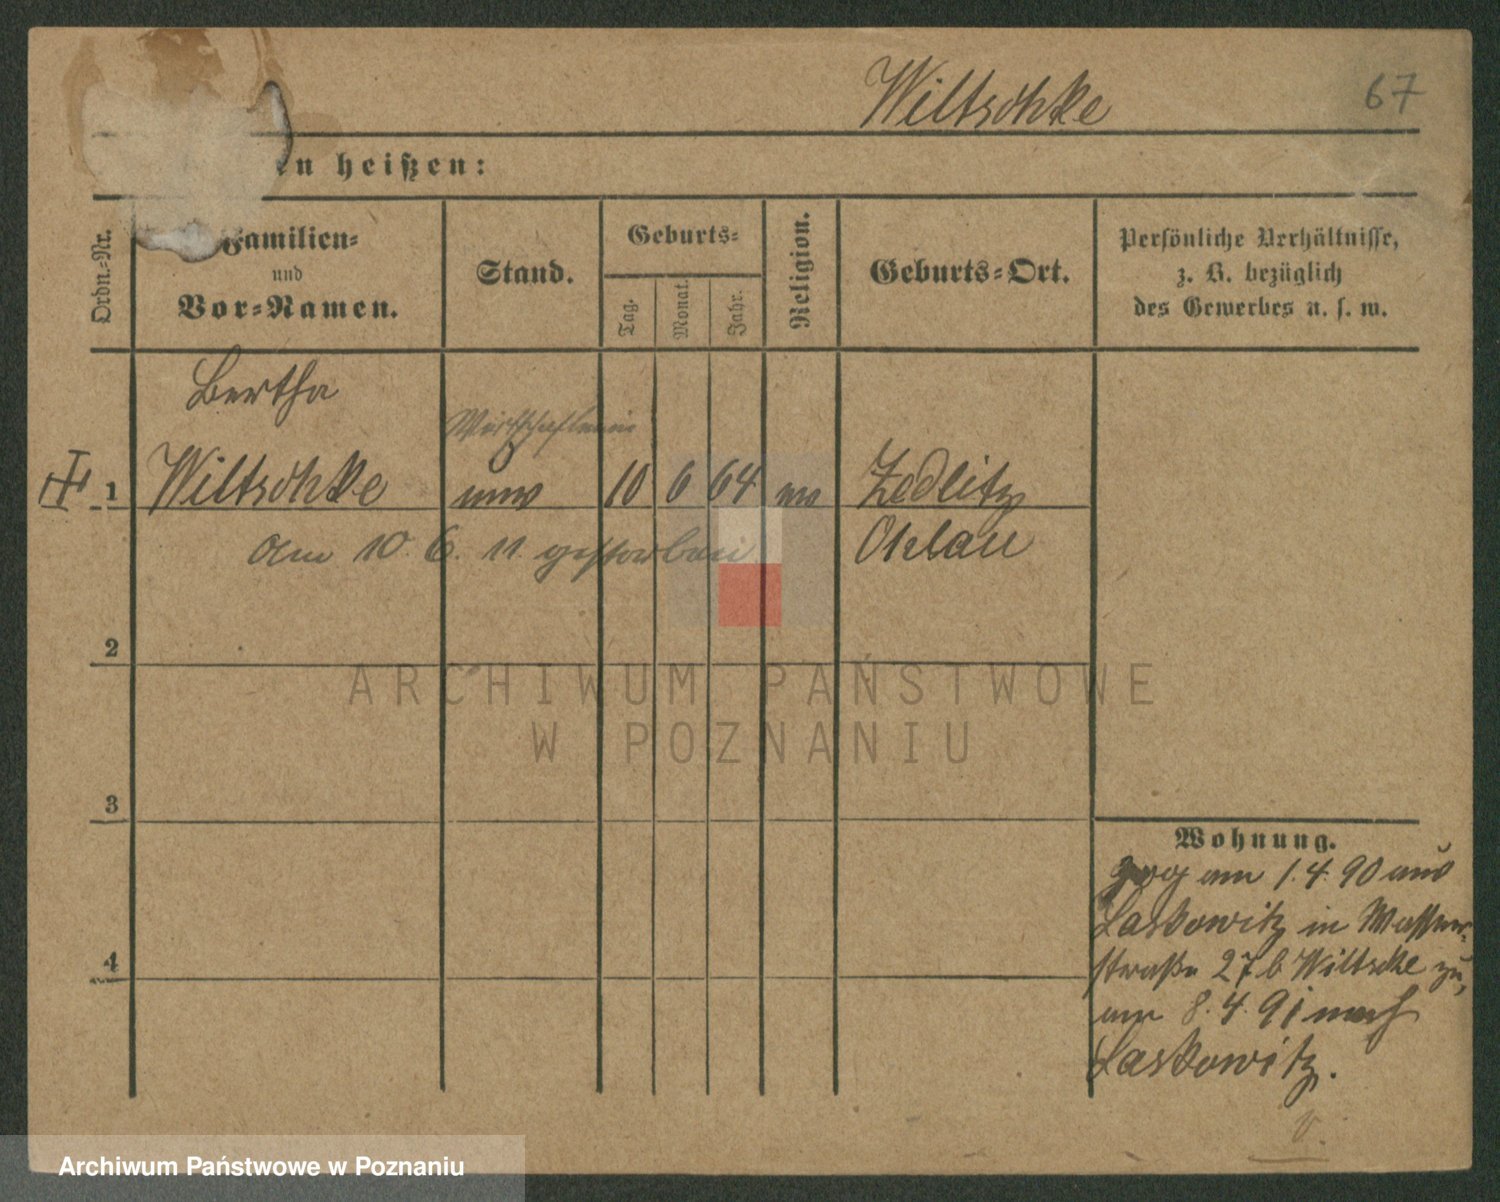 Wiltschke 67
en heißen:
Ordn.-Nr.
Familien-
und
Vor-Namen.
Stand.
Geburts-
Tag.
Monat.
Jahr.
Religion.
Geburts-Ort.
Persönliche Verhältnisse,
z. B. bezüglich
des Gewerbes u. s. w.
Bertha
1 Wiltschke unv 10 6 64 ev Zedlitz
Am 10. 6. 11 gestorben Ohlau
2
3
4
Wohnung.
zog am 1. 4. 90 aus
Laskowitz in Wasser-
straße 27 b Wiltschke zu,
am 8. 4. 91 nach
Laskowitz.
v.
ARCHIWUM PAŃSTWOWE
W POZNANIU
Archiwum Państwowe w Poznaniu